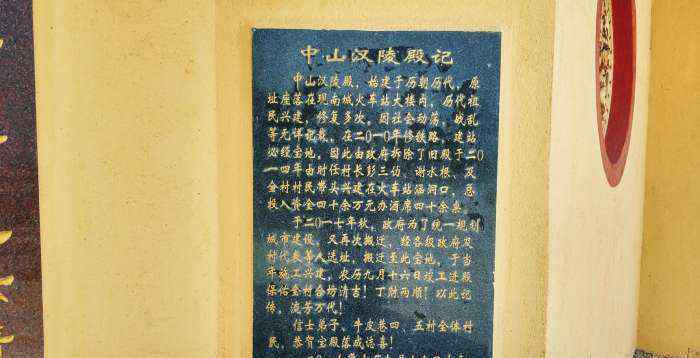 中山汉陵殿记
中山汉陵殿，始建于历朝历代，原
址座落在现南城火车站大楼内，历代祖
民兴建，修复多次，因社会动荡，战乱
等无详记载，在二〇一〇年修铁路，建站
必经宝地，因此由政府拆除了旧殿于二〇
一四年由时任村长彭三边、谢水根、及
全村村民带头兴建在火车站涵洞口，总
投入资金四十余万元办酒席四十余桌。
于二〇一七年秋，政府为了统一规划
城市建设，又再次搬迁，经各级政府及
村代表等人选址，搬迁至此宝地，于当
年施工兴建，农历九月十六日竣工进殿
保佑全村合坊清吉！丁财两顺！以此记
传，流芳万代！
信士弟子、牛皮巷四、五村全体村
民，恭贺宝殿落成志喜！